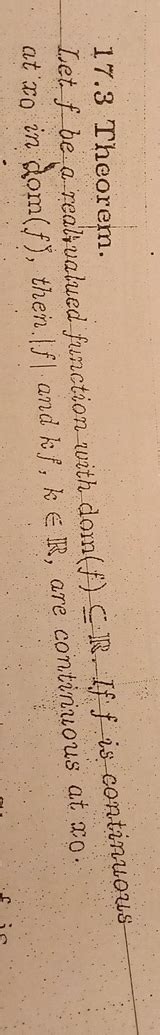 17.3 Theorem.
Let f be a real-valued function with dom(f) ⊆ ℝ. If f is continuous
at x₀ in dom(f), then |f| and kf, k ∈ ℝ, are continuous at x₀.